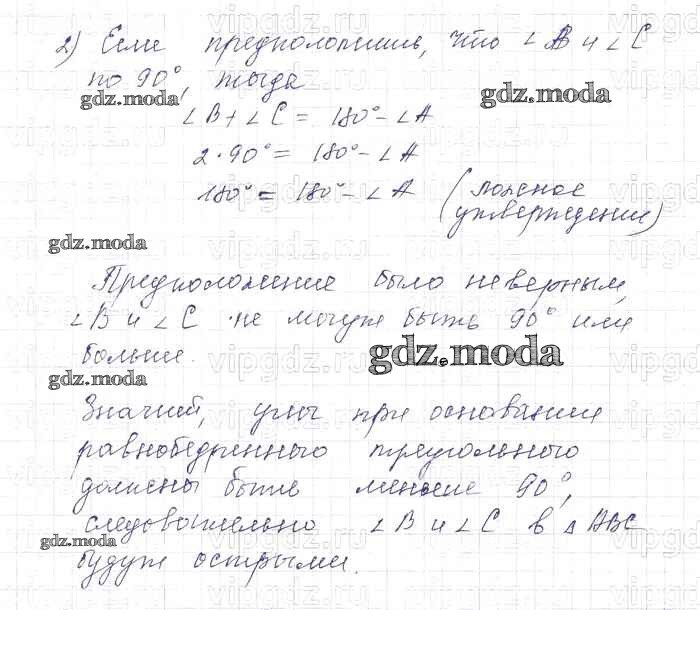 2) Если предположить, что ∠B и ∠C
по 90°, тогда
gdz.moda
gdz.moda
∠B + ∠C = 180° - ∠A
2·90° = 180° - ∠A
180° = 180° - ∠A (ложное
утверждение)
gdz.moda
Предположение было неверным,
∠B и ∠C не могут быть 90° или
больше.
gdz.moda
gdz.moda
Значит, углы при основании
равнобедренного треугольного
должны быть меньше 90°,
следовательно ∠B и ∠C в △ABC
gdz.moda
будут острыми.